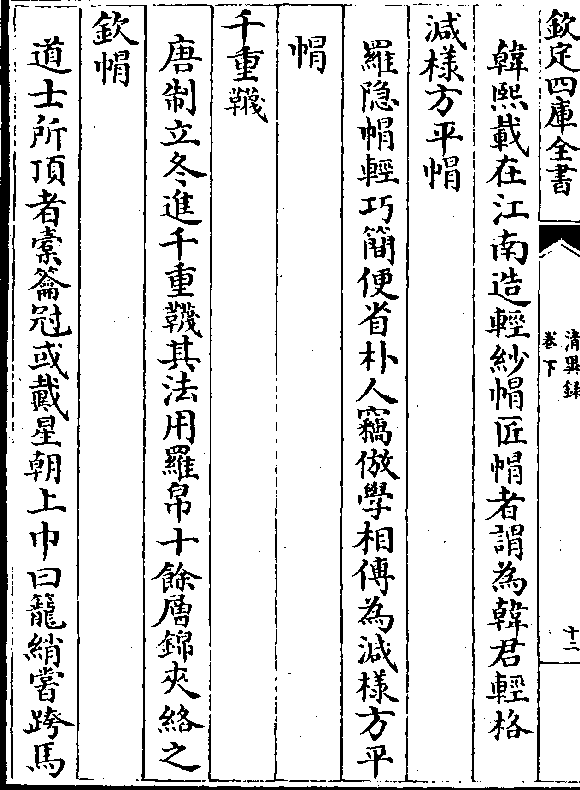 欽定四庫全書
清異錄
卷下
十二
韓熙載在江南造輕紗帽匠帽者謂為韓君輕格
減様方平帽
羅隐帽輕巧簡便省朴人竊倣學相傳為減様方平
帽
千重韈
唐制立冬進千重韈其法用羅帛十餘層錦夾絡之
欽帽
道士所頂者橐籥冠或戴星朝上巾曰籠綃嘗跨馬